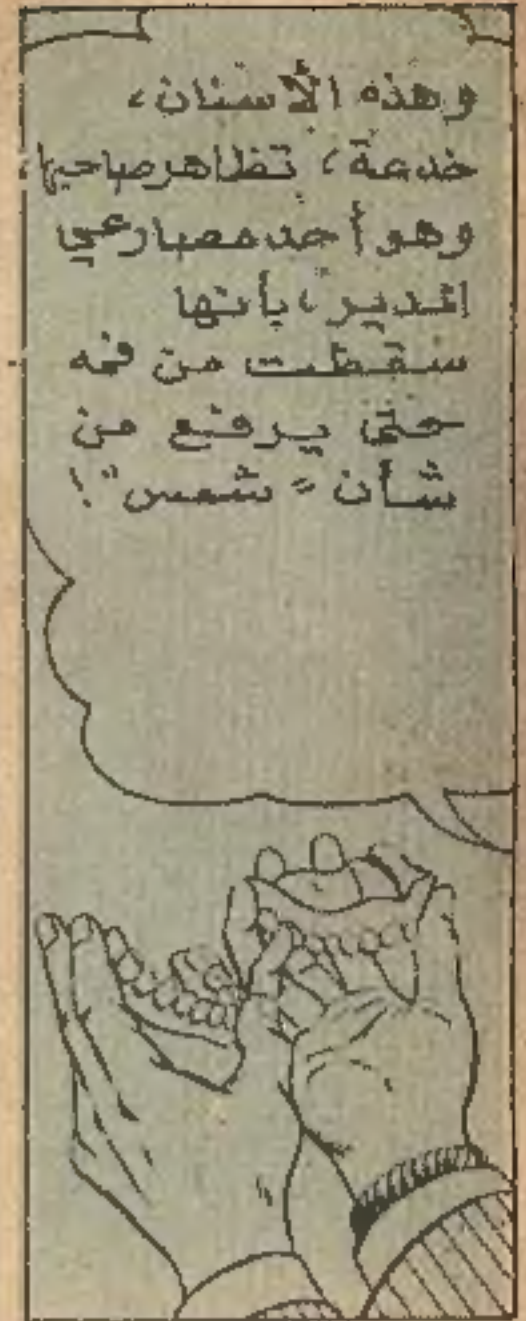 وهذه الأسنان،
خدعة، تظاهر صاحبها،
وهو أحد مصارعي
المدير، بأنها
سقطت من فمه
حتى يرفع من
شأن "شمس"!